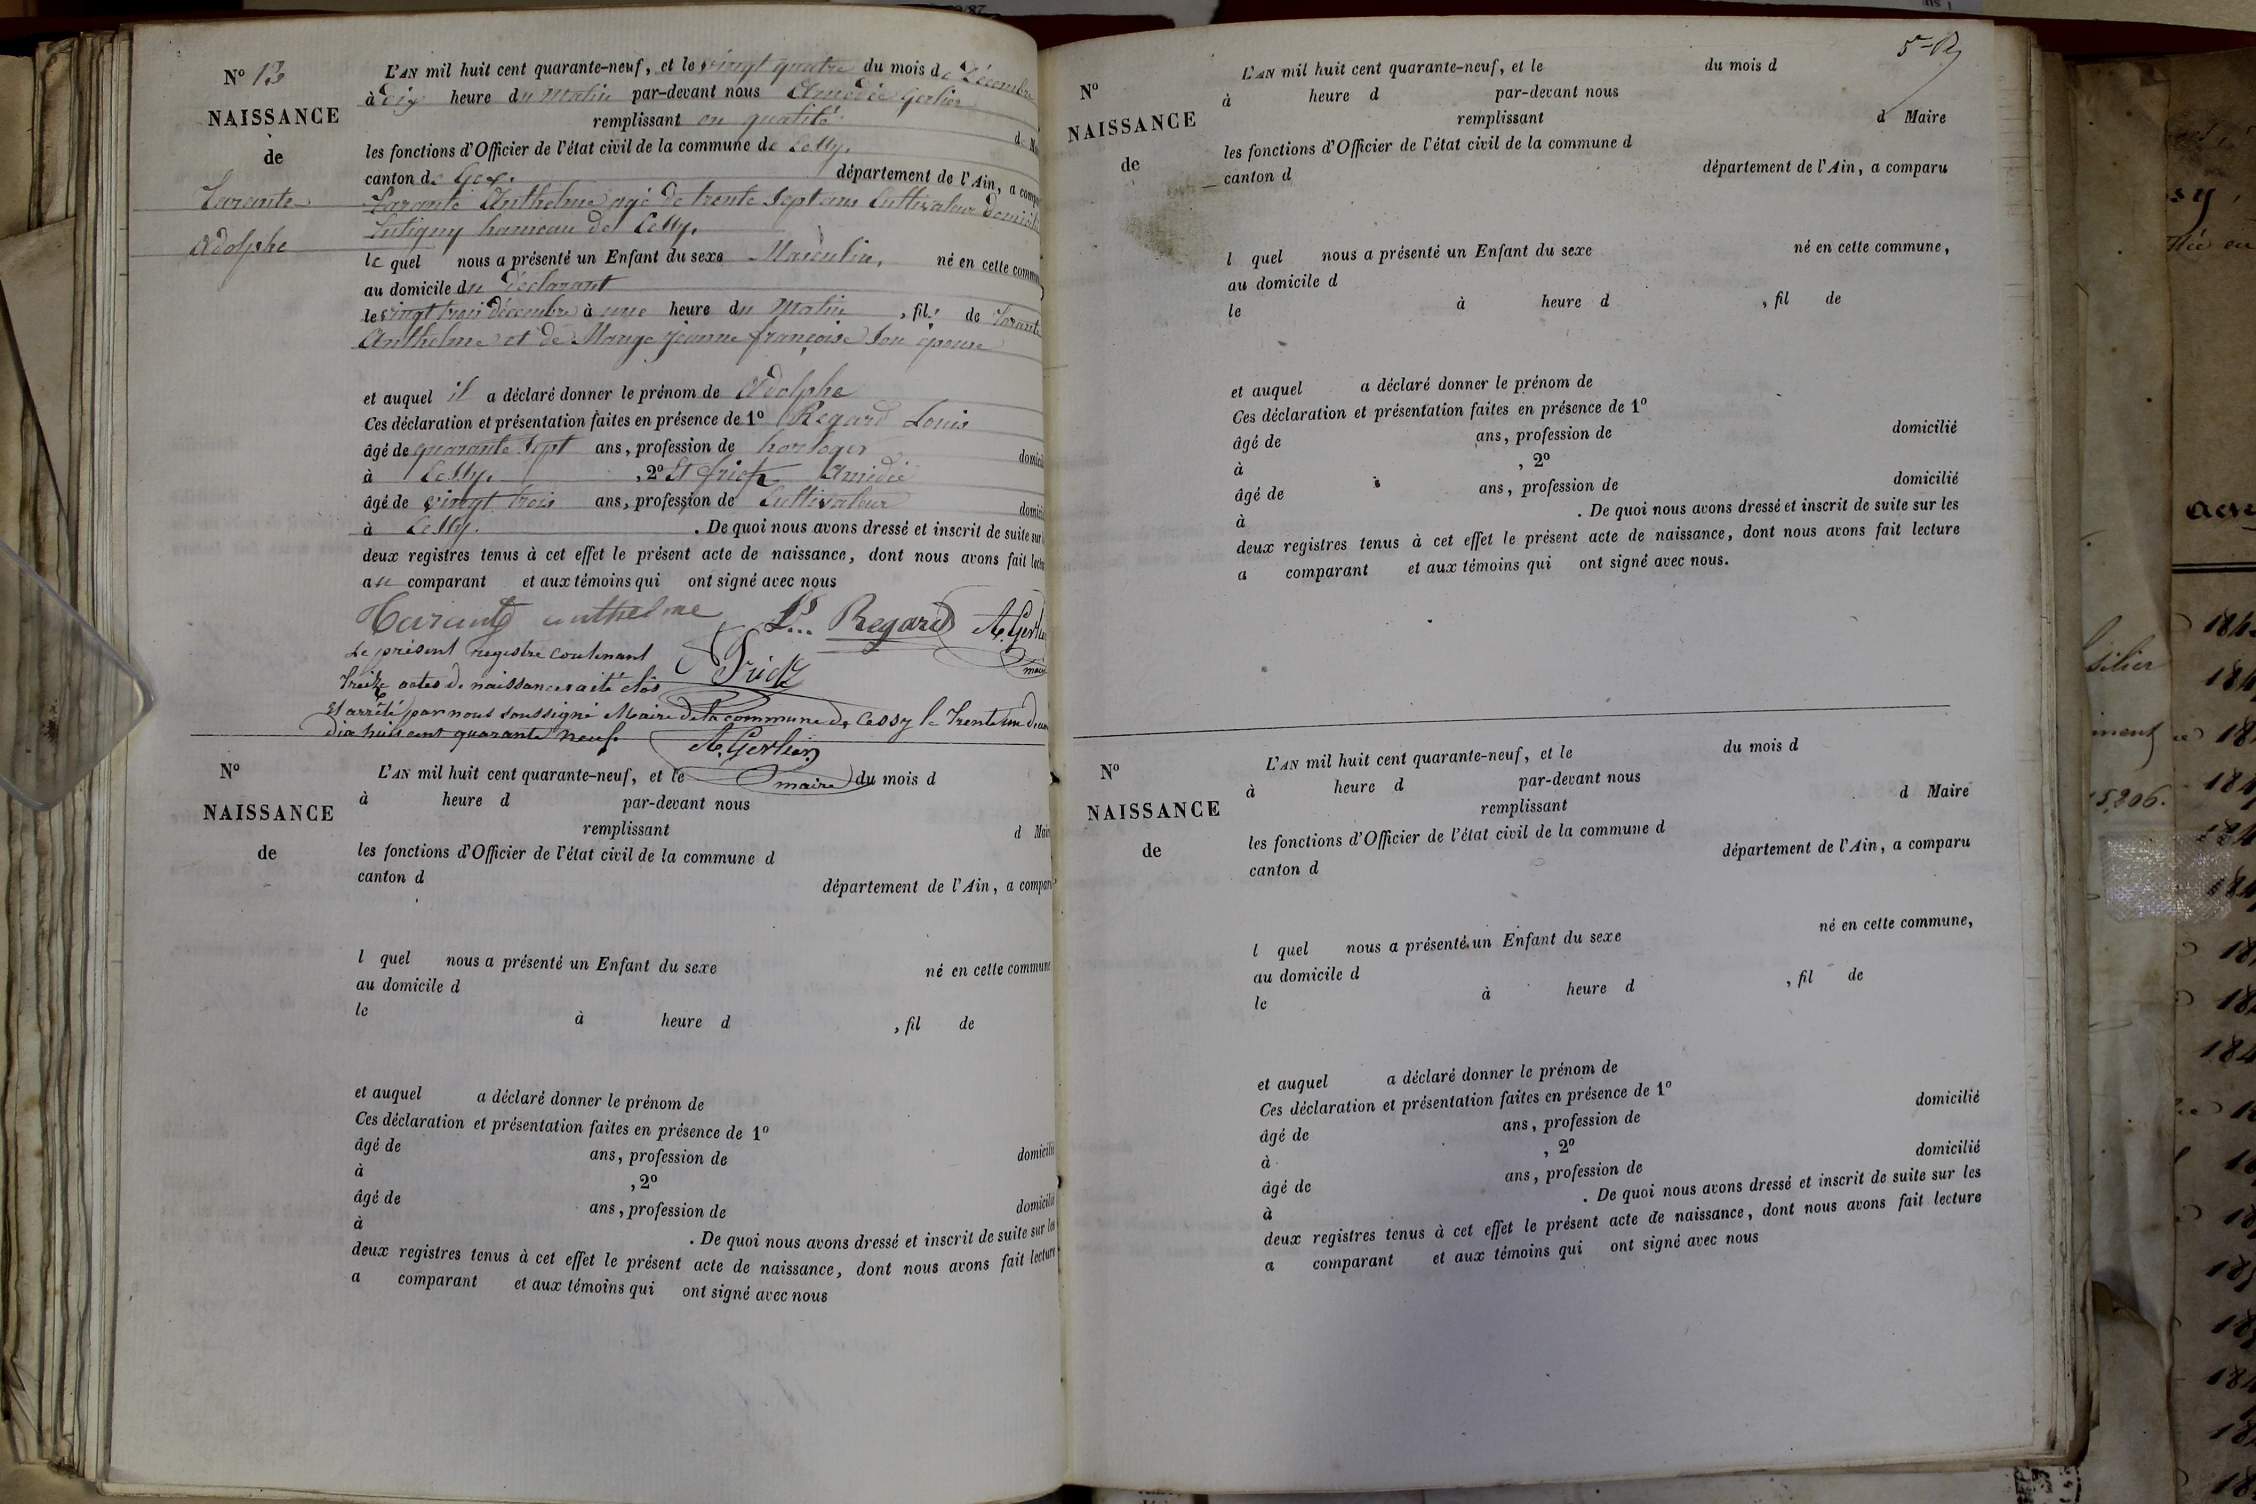 N° 13
NAISSANCE
de
Tarante
Adolphe
L'AN mil huit cent quarante-neuf, et le vingt quatre du mois de Décembre
à dix heure du Matin par-devant nous Amédée Gerlier
remplissant en qualité de
les fonctions d'Officier de l'état civil de la commune de Cessy.
canton de Gex. département de l'Ain, a compa
Tarante Anthelme agé de trente Sept ans Cultivateur domicilié
hameau de Cessy.
le quel nous a présenté un Enfant du sexe Masculin, né en cette commun
au domicile du Déclarant
le vingt trois décembre à une heure du Matin, fils de Tarante
Anthelme et de Mange jeanne françoise Son épouse
et auquel il a déclaré donner le prénom de Adolphe
Ces déclaration et présentation faites en présence de 1° Regard Louis
âgé de quarante Sept ans, profession de horloger domici
à Cessy. , 2° Et Frick Amédée
âgé de vingt trois ans, profession de Cultivateur domici
à Cessy. . De quoi nous avons dressé et inscrit de suite sur
deux registres tenus à cet effet le présent acte de naissance, dont nous avons fait lectu
au comparant et aux témoins qui ont signé avec nous
Tarante anthelme Ls Regard A. Gerlier
maire
Le présent registre contenant A Frick
treize actes de naissances a été clos
et arrêté par nous soussigné Maire de la commune de Cessy le Trente un
dix huit cent quarante neuf.
A. Gerlier
maire
N°
NAISSANCE
de
L'AN mil huit cent quarante-neuf, et le du mois d
à heure d par-devant nous
remplissant d Mair
les fonctions d'Officier de l'état civil de la commune d
canton d département de l'Ain, a compar
l quel nous a présenté un Enfant du sexe né en cette commune
au domicile d
le à heure d , fil de
et auquel a déclaré donner le prénom de
Ces déclaration et présentation faites en présence de 1°
âgé de ans, profession de domicilié
à , 2°
âgé de ans, profession de domicilié
à . De quoi nous avons dressé et inscrit de suite sur les
deux registres tenus à cet effet le présent acte de naissance, dont nous avons fait lecture
a comparant et aux témoins qui ont signé avec nous
N°
NAISSANCE
de
L'AN mil huit cent quarante-neuf, et le du mois d
à heure d par-devant nous
remplissant d Maire
les fonctions d'Officier de l'état civil de la commune d
canton d département de l'Ain, a comparu
l quel nous a présenté un Enfant du sexe né en cette commune,
au domicile d
le à heure d , fil de
et auquel a déclaré donner le prénom de
Ces déclaration et présentation faites en présence de 1°
âgé de ans, profession de domicilié
à , 2°
âgé de ans, profession de domicilié
à . De quoi nous avons dressé et inscrit de suite sur les
deux registres tenus à cet effet le présent acte de naissance, dont nous avons fait lecture
a comparant et aux témoins qui ont signé avec nous.
N°
NAISSANCE
de
L'AN mil huit cent quarante-neuf, et le du mois d
à heure d par-devant nous
remplissant d Maire
les fonctions d'Officier de l'état civil de la commune d
canton d département de l'Ain, a comparu
l quel nous a présenté un Enfant du sexe né en cette commune,
au domicile d
le à heure d , fil de
et auquel a déclaré donner le prénom de
Ces déclaration et présentation faites en présence de 1°
âgé de ans, profession de domicilié
à , 2°
âgé de ans, profession de domicilié
à . De quoi nous avons dressé et inscrit de suite sur les
deux registres tenus à cet effet le présent acte de naissance, dont nous avons fait lecture
a comparant et aux témoins qui ont signé avec nous